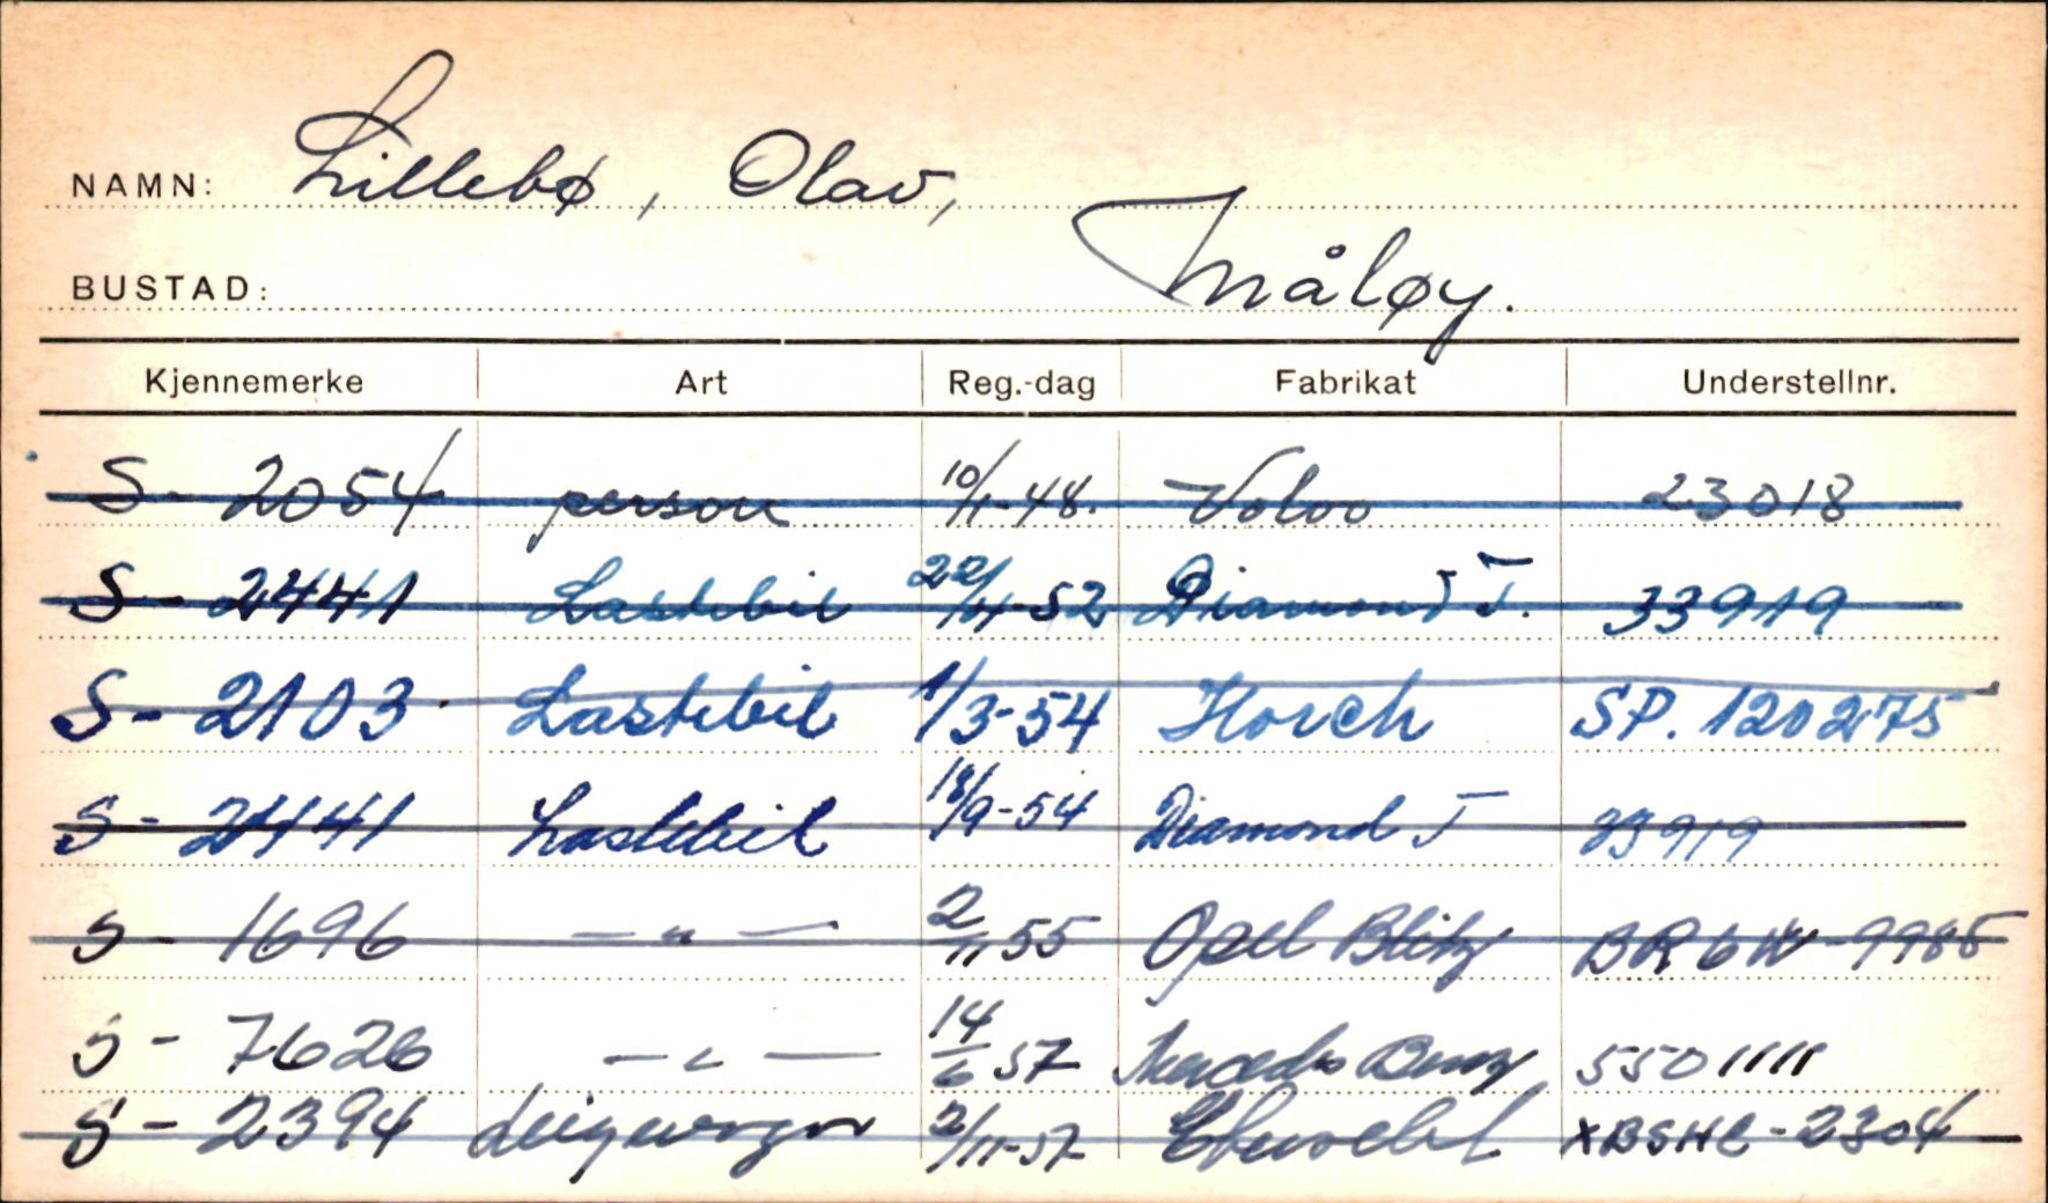 NAMN: Lillebø, Olav,
BUSTAD: Måløy.
Kjennemerke Art Reg.-dag Fabrikat Understellnr.
S - 2054 person 10/1-48. Volvo 23018
S - 2441 Lastebil 22/11-52 Diamond T. 33919
S - 2103 Lastebil 1/3-54 Horch SP. 120275
S - 2441 Lastebil 18/9-54 Diamond T 33919
S - 1696 — " — 2/11 55 Opel Blitz BR6W-9985
S - 7626 — " — 14/6 57 Mercedes Benz 5501111
S - 2394 2/11-57 Chevrolet XBSHC-2304